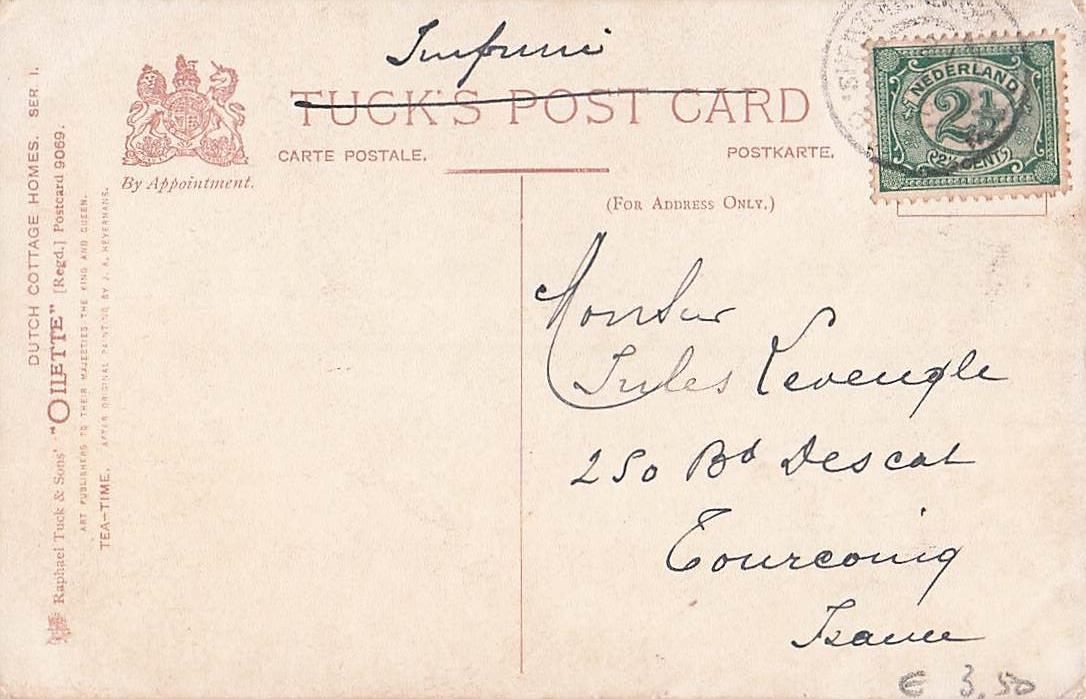 Imprimé
TUCK'S POST CARD
CARTE POSTALE.
POSTKARTE.
By Appointment.
(FOR ADDRESS ONLY.)
NEDERLAND
2½
2½ CENT
DUTCH COTTAGE HOMES. SER. I.
Raphael Tuck & Sons' "OILETTE" [Regd.] Postcard 9069.
ART PUBLISHERS TO THEIR MAJESTIES THE KING AND QUEEN.
TEA-TIME. AFTER ORIGINAL PAINTING BY J. A. HEYERMANS.
Monsieur
Jules
250 Bd Descat
Tourcoing
France
€ 3,50